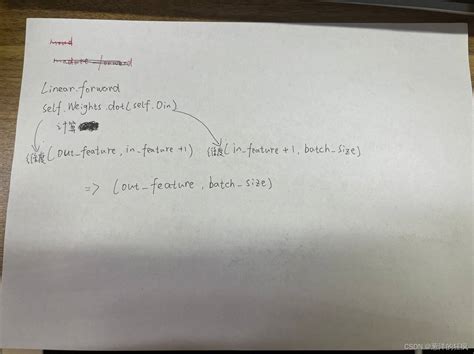 Linear.forward
self.Weights.dot(self.Oin)
计算
维度(out_feature, in_feature+1) 维度(in_feature+1, batch_size)
=> (out_feature, batch_size)